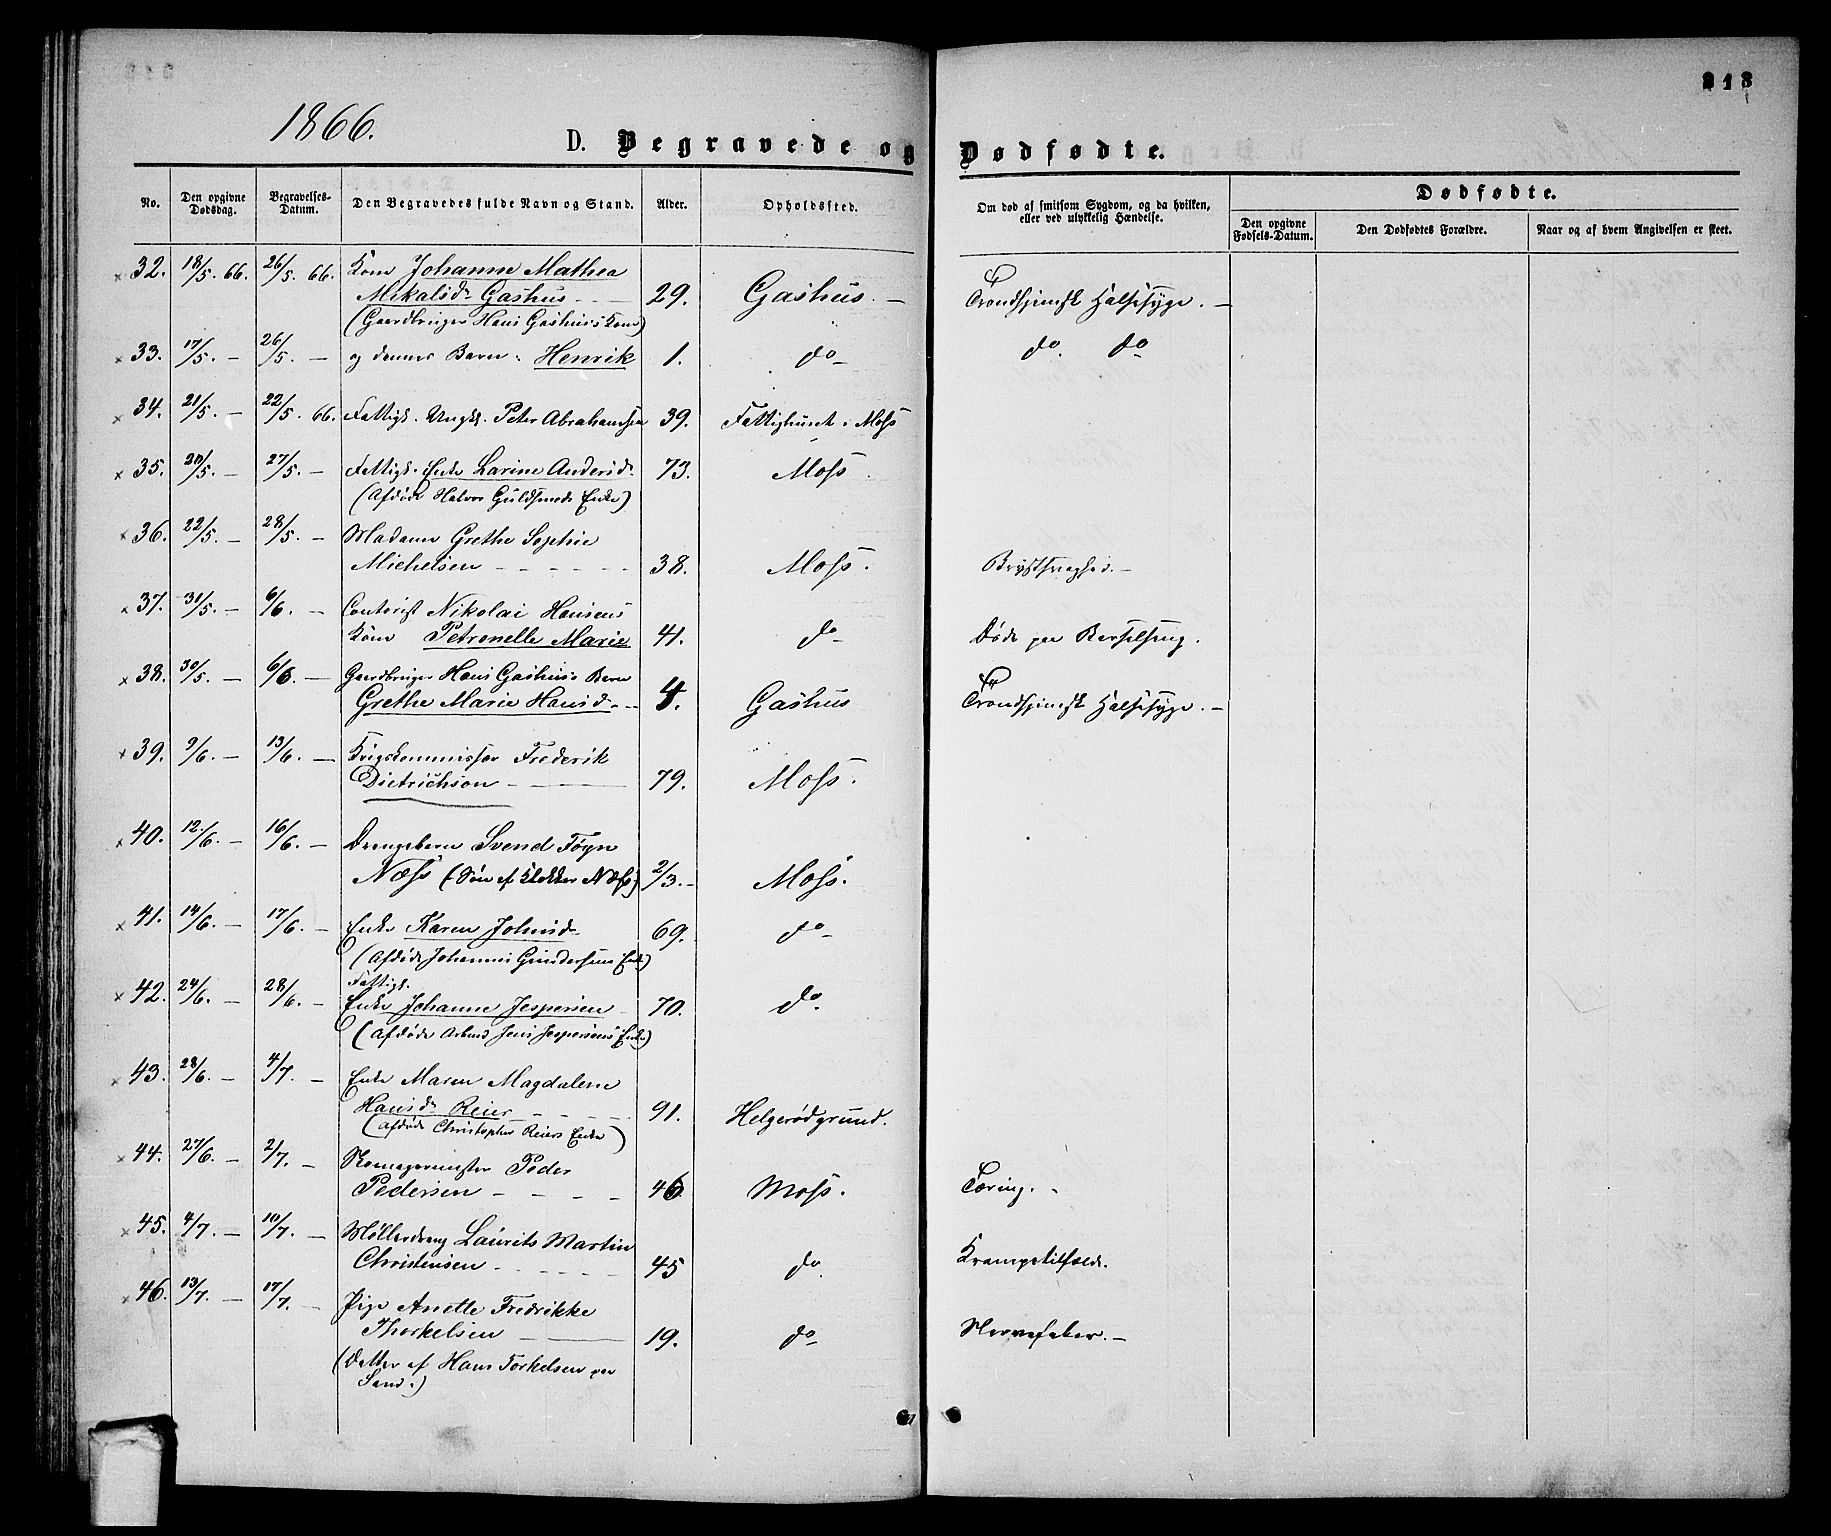 213
1866.
D. Begravede og Dødfødte.
No. Den opgivne Dødsdag. Begravelses-Datum. Den Begravedes fulde Navn og Stand. Alder. Opholdssted. Om død af smitsom Sygdom, og da hvilken, eller ved ulykkelig Hændelse. Dødfødte.
Den opgivne Fødsels-Datum. Den Dødfødtes Forældre. Naar og af hvem Angivelsen er skeet.
32. 18/5. 66. 26/5. 66. Kone Johanne Mathea
Mikalsd. Gashus 29. Gashus. Trondhjemsk Halssyge.
(Gaardbruger Hans Gashus's Kone)
33. 17/5. – 26/5. – og dennes Barn Henrik 1. do do. do
34. 21/5. – 22/5. 66. Fattigl. Ungk. Peter Abrahamsen 39. Fattighuset i Moss
35. 20/5. – 27/5. – Fattigl. Enke Larine Andersd. 73. Moss.
(Afdøde Halvor Guldsmeds Enke)
36. 22/5. – 28/5. – Madame Grethe Sophie
Michelsen 38. Moss. Brystsvaghed.
37. 31/5. – 6/6. – Contorist Nikolai Hansens
Kone Petronelle Marie 41. do Døde paa Barselseng.
38. 30/5. – 6/6. – Gaardbruger Hans Gashus's Barn
Grethe Marie Hansd. 4. Gashus Trondhjemsk Halssyge.
39. 9/6. – 13/6. – Krigskommissær Frederik
Dietrichson 79. Moss.
40. 12/6. – 16/6. – Drengebarn Svend Føyn
Næss (Søn af Klokker Næss) 2/3. Moss.
41. 14/6. – 17/6. – Enke Karen Johnsd. 69. do
(Afdøde Johannes Gundersens Enke)
42. 24/6. – 28/6. – Fattigl.
Enke Johanne Jespersen 70. do.
(Afdøde Arbmd Jens Jespersens Enke)
43. 28/6. – 4/7. – Enke Maren Magdalene
Hansd. Reier 91. Helgerødgrund.
(Afdøde Christopher Reiers Enke)
44. 27/6. – 2/7. – Skomagermester Peder
Pedersen 46. Moss. Tæring.
45. 4/7. – 10/7. – Møllerdreng Laurits Martin
Christensen 45 do. Krampetilfælde.
46. 13/7. – 17/7. – Pige Anette Fredrikke
Thorkelsen 19. do Nervefeber.
(Datter af Hans Torkelsen paa
Sand.)